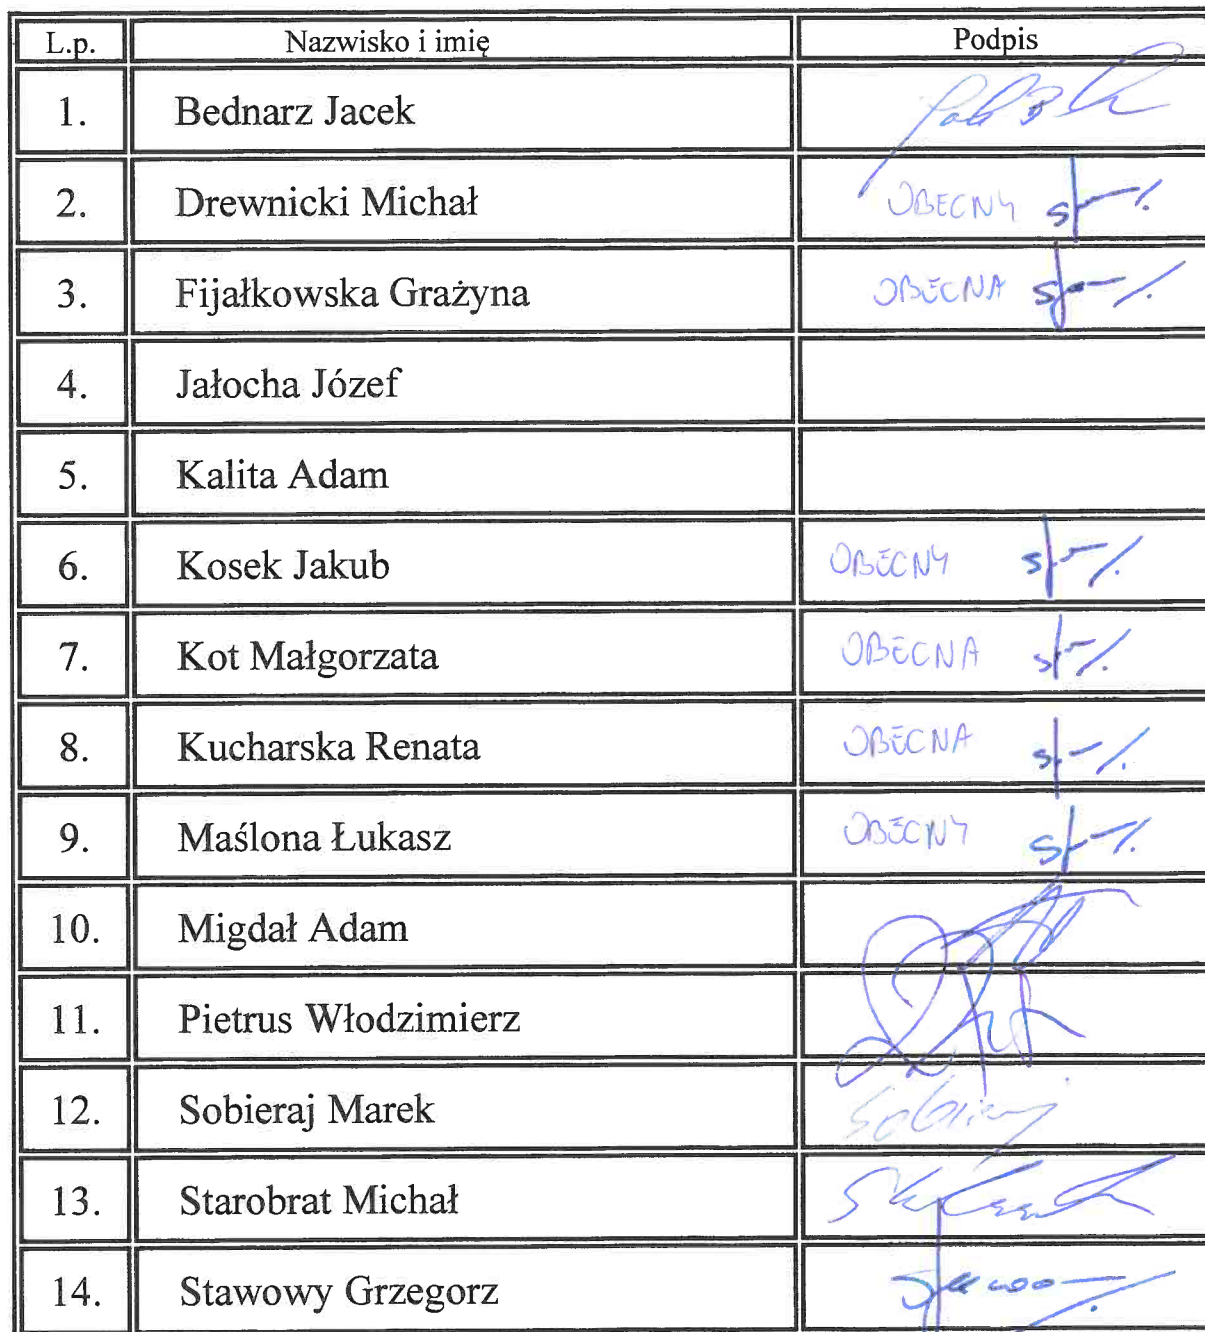 L.p. Nazwisko i imię Podpis
1. Bednarz Jacek
2. Drewnicki Michał OBECNY
3. Fijałkowska Grażyna OBECNA
4. Jałocha Józef
5. Kalita Adam
6. Kosek Jakub OBECNY
7. Kot Małgorzata OBECNA
8. Kucharska Renata OBECNA
9. Maślona Łukasz OBECNY
10. Migdał Adam
11. Pietrus Włodzimierz
12. Sobieraj Marek
13. Starobrat Michał
14. Stawowy Grzegorz